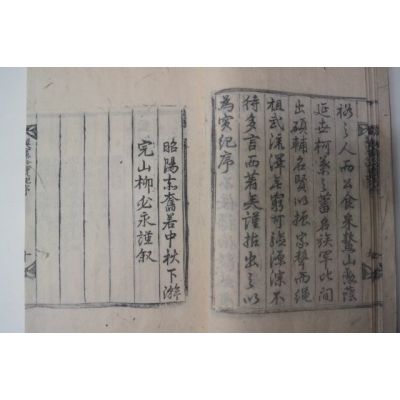 裕之人而公食采鰲山蔭
延世柯葉之蕃名族罕比間
出碩輔名賢以振家聲而繩
祖武流澤無窮可驗源深不
待多言而著矣謹拈出之以
為實紀序
昭陽赤奮若中秋下澣
完山柳必永謹叙